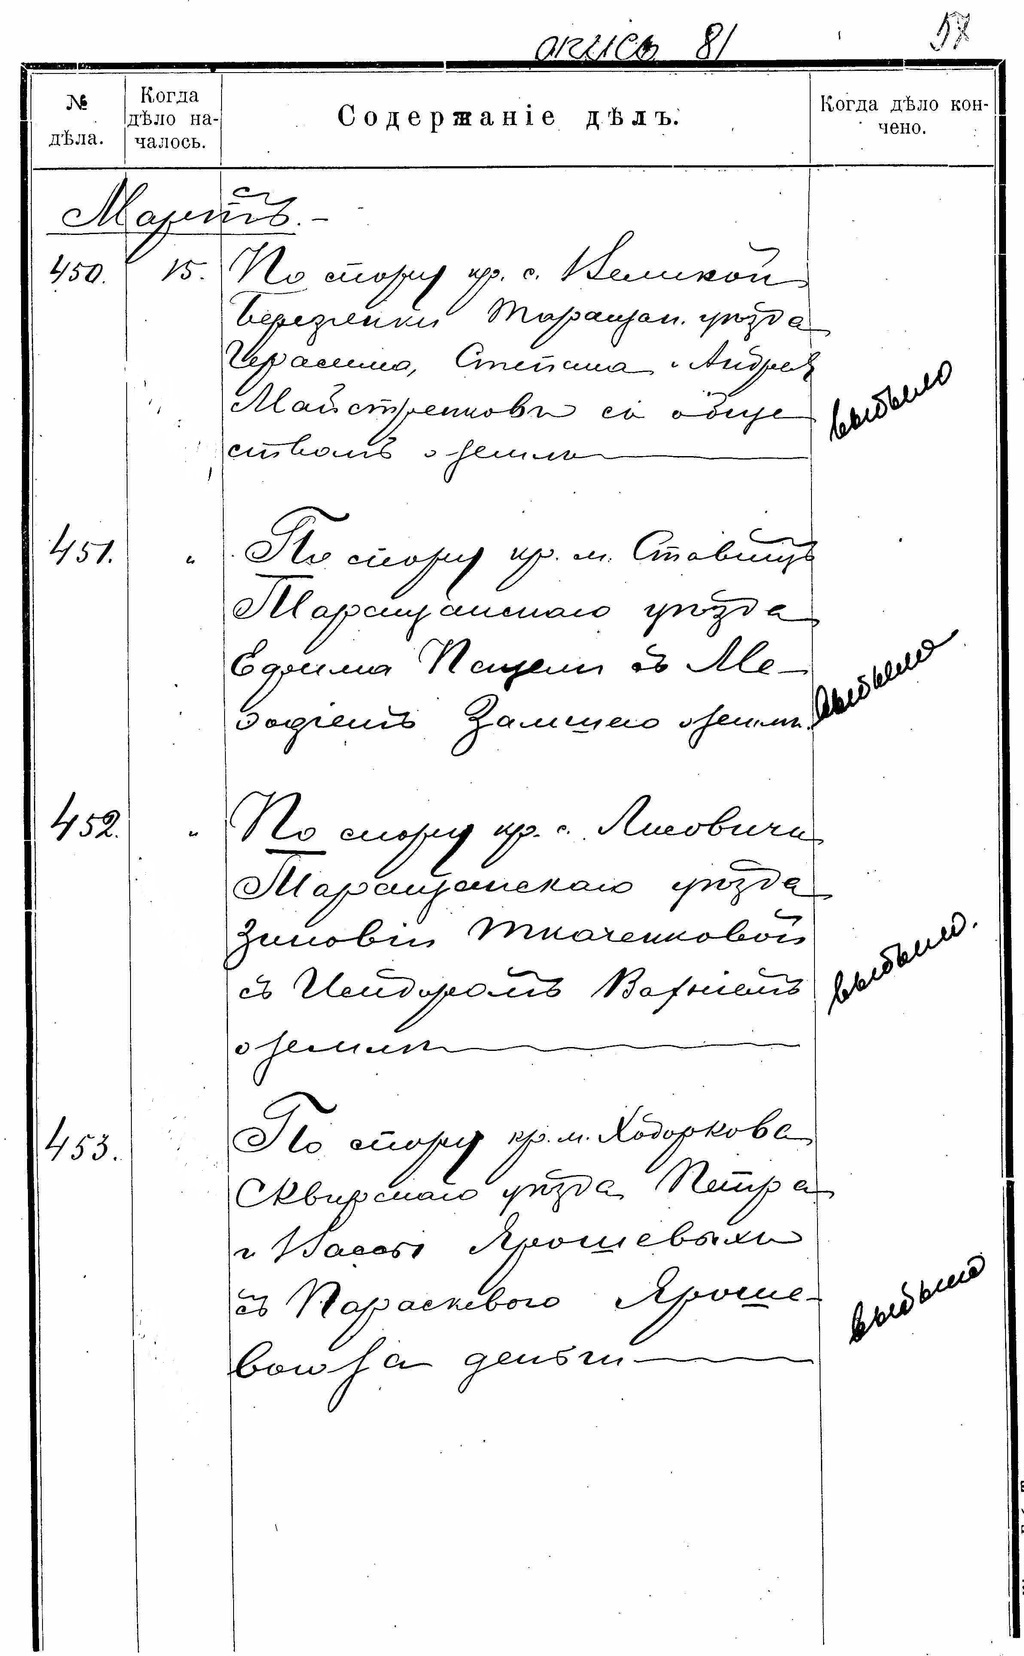 опись 81 57
№ дѣла.
Когда дѣло на-
чалось.
Содержаніе дѣлъ.
Когда дѣло кон-
чено.
Мартъ.
450. 15. По спору кр. с. Великой
Березянки Таращан. уѣзда
Герасима, Степана и Андрея
Майстренковъ съ обще
ствомъ о землѣ
выбыло
451. " По спору кр. м. Ставищъ
Таращанскаго уѣзда
Ефима съ Ме-
фодіемъ о землѣ.
выбыло
452. " По спору кр. с. Лисовичи
Таращанскаго уѣзда
Зиновіи Ткаченковой
съ Исидоромъ
о землѣ
выбыло.
453. По спору кр. м. Ходоркова
Сквирскаго уѣзда Петра
и Вассы Ярошевыхъ
съ Параскевою Яроше-
вою за деньги
выбыло